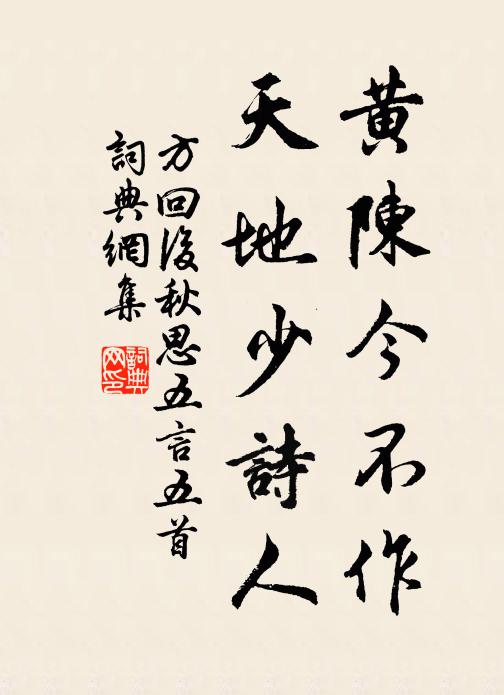 黃陳今不作
天地少詩人
方回後秋思五言五首
詞典網集
詞典網印